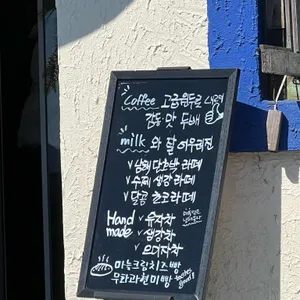 Coffee 고급원두로 내린
감동 맛 두배
milk 와 잘 어우러진
√ 삼색 단호박 라떼
√ 수제 생강 라떼
√ 달콤 초코 라떼
Hand made √ 유자차
√ 생강차
√ 오디자차
마늘크림치즈빵
무화과현미빵